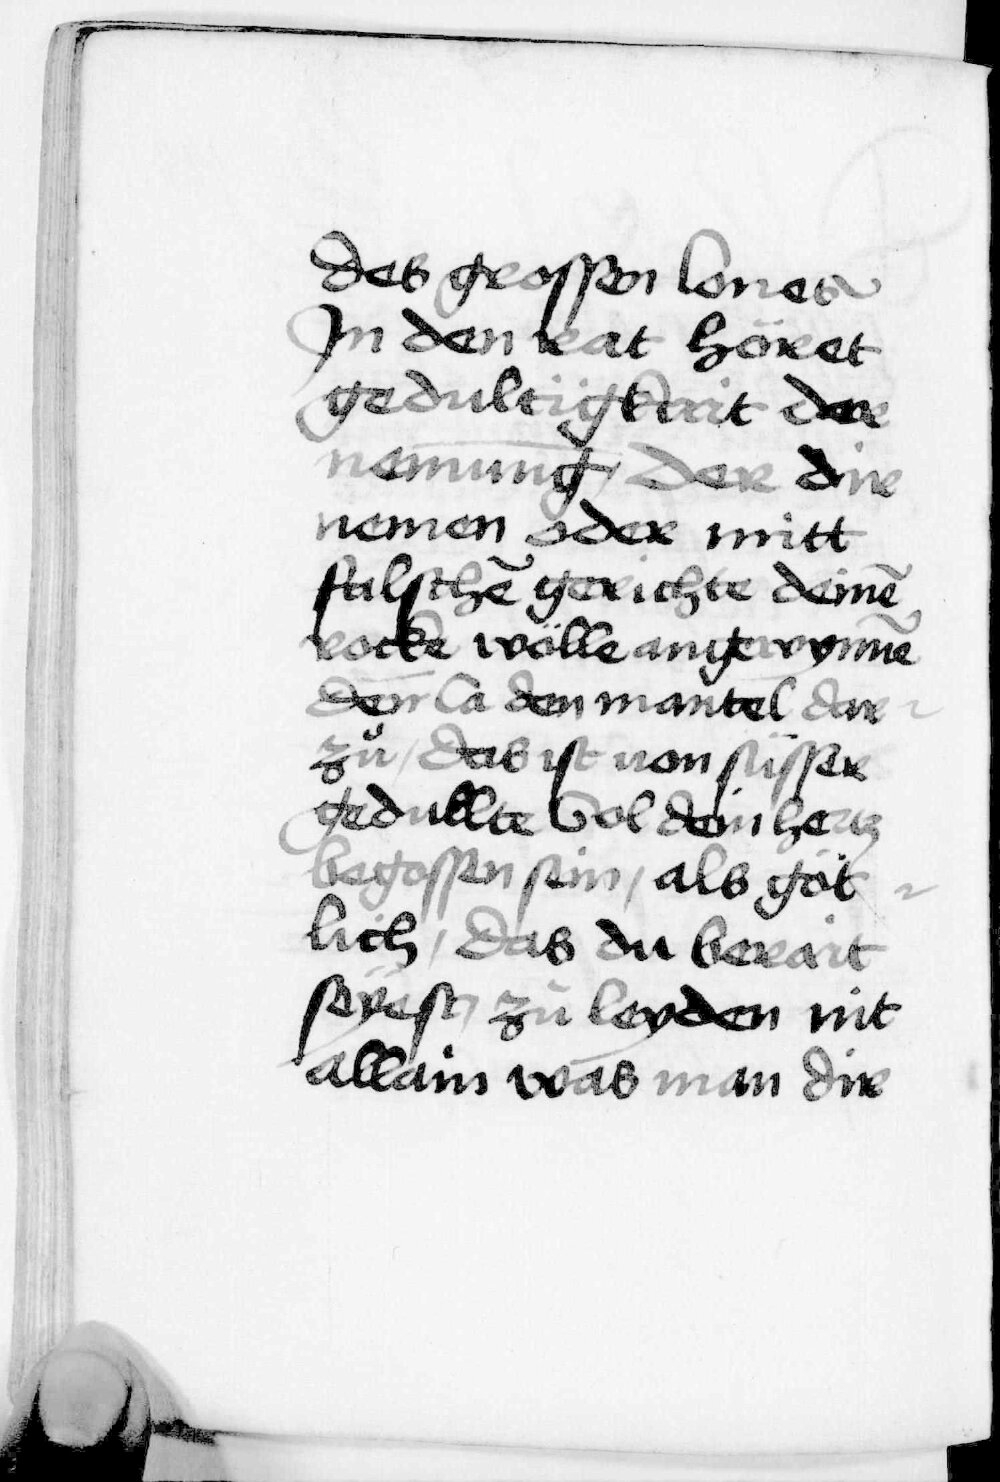 des grossen lones
In den rat höret
gedultigkait der
nemung / der dir
nemen oder mitt
falschē gerichte deinē
rocke wölle angewynnē
dem la den mantel dar
zů / das ist von süsser
gedullte Sol dein hertz
begossen sein / als göt
lich / das du berait
seyest / zů leyden nit
allain was man dir